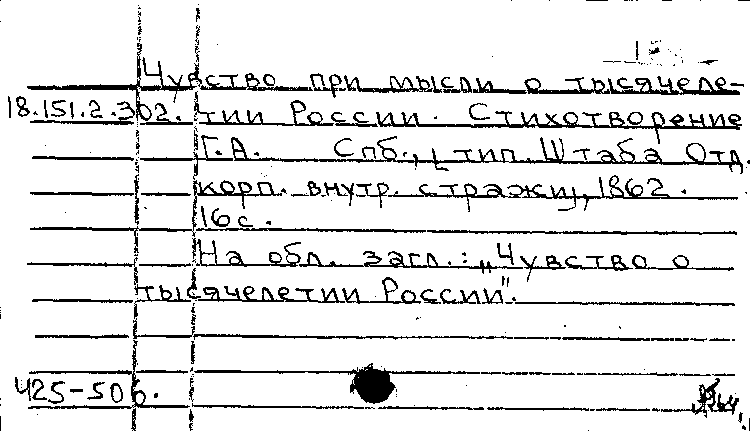 Чувство при мысли о тысячеле-
18.151.2.302. тии России. Стихотворение
Г.А. Спб., [тип. Штаба Отд.
корп. внутр. стражи], 1862.
16 с.
На обл. загл.: „Чувство о
тысячелетии России".
425-50б.